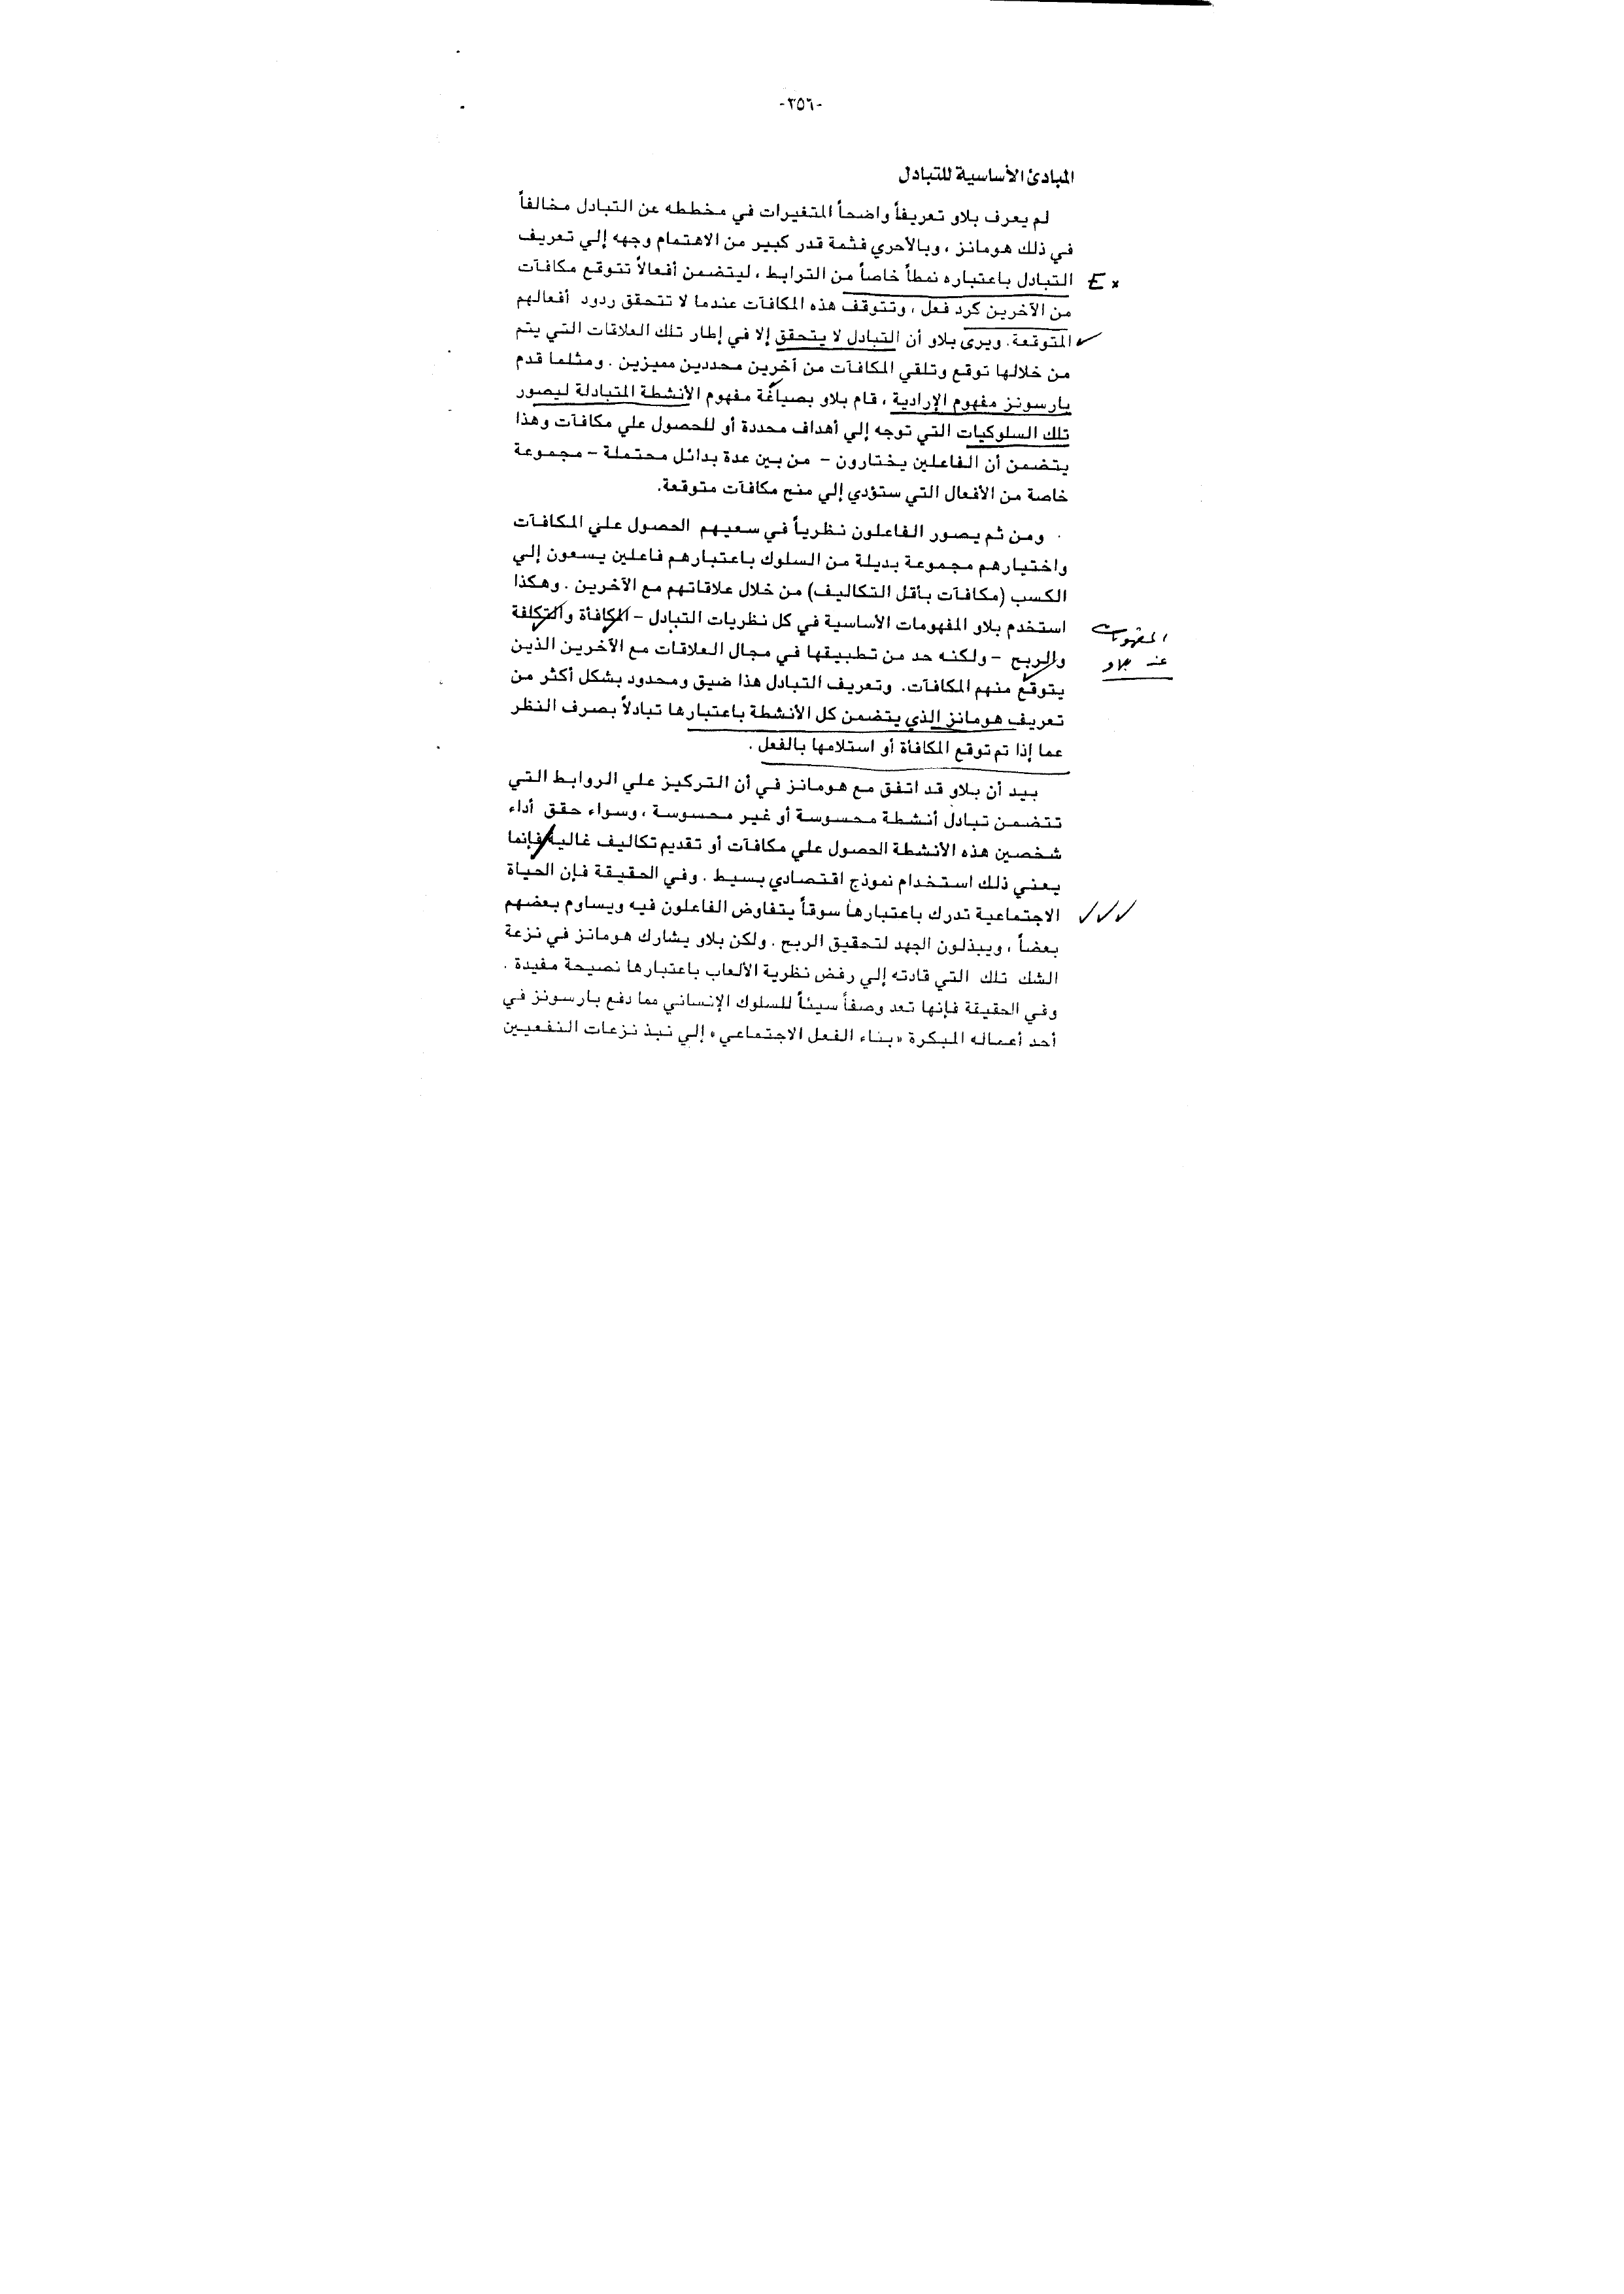 -٢٥٦-
المبادئ الأساسية للتبادل
لم يعرف بلاو تعريفاً واضحاً المتغيرات في مخططه عن التبادل مخالفاً
في ذلك هومانز ، وبالأحري فثمة قدر كبير من الاهتمام وجهه إلي تعريف
التبادل باعتباره نمطاً خاصاً من الترابط ، ليتضمن أفعالاً تتوقع مكافآت
من الآخرين كرد فعل ، وتتوقف هذه المكافآت عندما لا تتحقق ردود أفعالهم
المتوقعة. ويرى بلاو أن التبادل لا يتحقق إلا في إطار تلك العلاقات التي يتم
من خلالها توقع وتلقي المكافآت من أخرين محددين مميزين . ومثلما قدم
بارسونز مفهوم الإرادية ، قام بلاو بصياغة مفهوم الأنشطة المتبادلة ليصور
تلك السلوكيات التي توجه إلي أهداف محددة أو للحصول علي مكافآت وهذا
يتضمن أن الفاعلين يختارون - من بين عدة بدائل محتملة - مجموعة
خاصة من الأفعال التي ستؤدي إلي منح مكافآت متوقعة.
ومن ثم يصور الفاعلون نظرياً في سعيهم الحصول علي المكافآت
واختيارهم مجموعة بديلة من السلوك باعتبارهم فاعلين يسعون إلي
الكسب (مكافآت بأقل التكاليف) من خلال علاقاتهم مع الآخرين . وهكذا
استخدم بلاو المفهومات الأساسية في كل نظريات التبادل - المكافأة والتكلفة
والربح - ولكنه حد من تطبيقها في مجال العلاقات مع الآخرين الذين
يتوقع منهم المكافآت. وتعريف التبادل هذا ضيق ومحدود بشكل أكثر من
تعريف هومانز الذي يتضمن كل الأنشطة باعتبارها تبادلاً بصرف النظر
عما إذا تم توقع المكافأة أو استلامها بالفعل .
المفهومات
عند بلاو
بيد أن بلاو قد اتفق مع هومانز في أن التركيز علي الروابط التي
تتضمن تبادل أنشطة محسوسة أو غير محسوسة ، وسواء حقق أداء
شخصين هذه الأنشطة الحصول علي مكافآت أو تقديم تكاليف غالية فإنما
يعني ذلك استخدام نموذج اقتصادي بسيط . وفي الحقيقة فإن الحياة
الاجتماعية تدرك باعتبارها سوقاً يتفاوض الفاعلون فيه ويساوم بعضهم
بعضاً ، ويبذلون الجهد لتحقيق الربح . ولكن بلاو يشارك هومانز في نزعة
الشك تلك التي قادته إلي رفض نظرية الألعاب باعتبارها نصيحة مفيدة .
وفي الحقيقة فإنها تعد وصفاً سيئاً للسلوك الإنساني مما دفع بارسونز في
أحد أعماله المبكرة «بناء الفعل الاجتماعي» إلي نبذ نزعات النفعيين